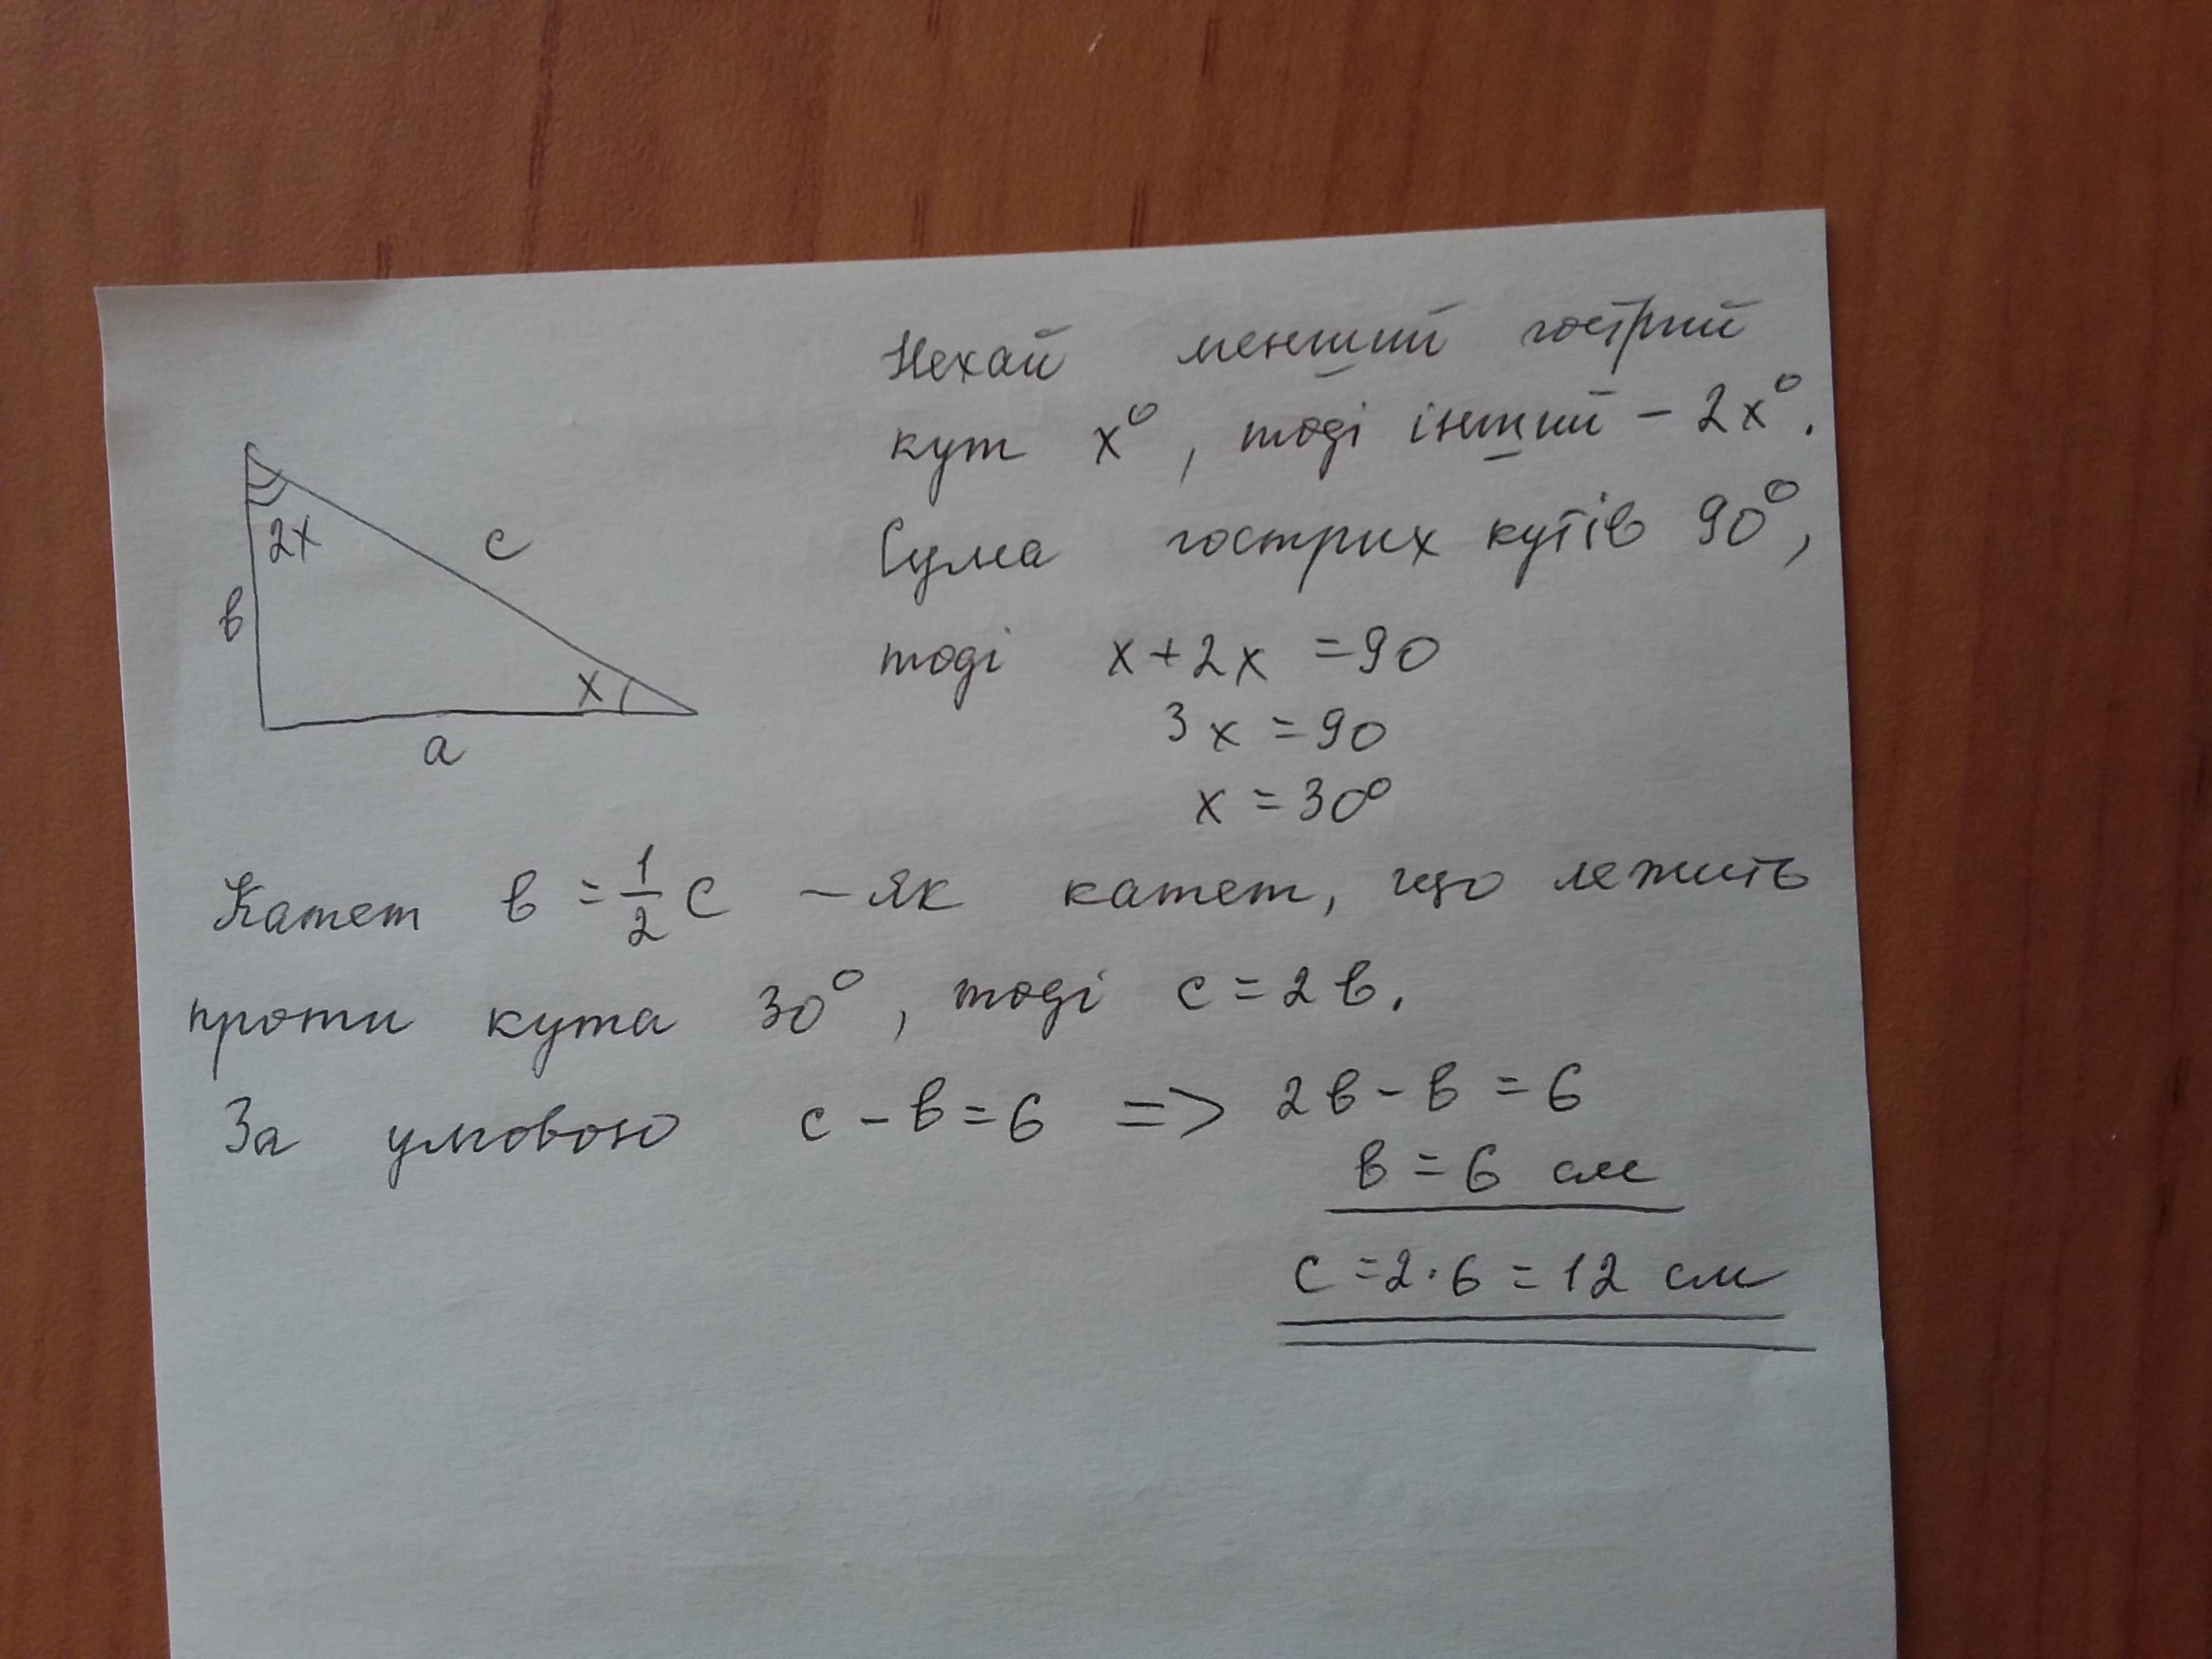 Нехай менший гострий
кут x°, тоді інший – 2x°.
Сума гострих кутів 90°,
тоді x + 2x = 90
3x = 90
x = 30°
2x
c
в
x
a
Катет в = 1/2 c – як катет, що лежить
проти кута 30°, тоді c = 2в.
За умовою c – в = 6 => 2в – в = 6
в = 6 см
c = 2·6 = 12 см